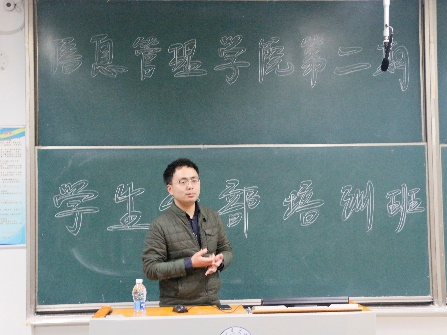 信息管理学院第二期
学生干部培训班